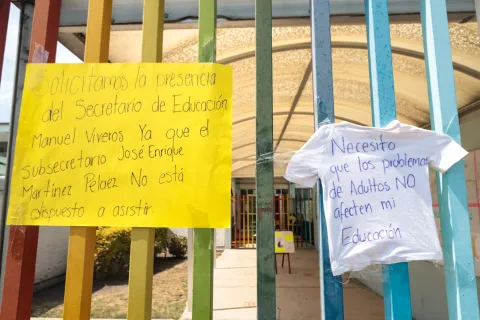 Solicitamos la presencia
del Secretario de Educación
Manuel Viveros Ya que el
subsecretario José Enrique
Martínez Peláez No está
dispuesto a asistir.
Necesito
que los problemas
de Adultos NO
afecten mi
Educación